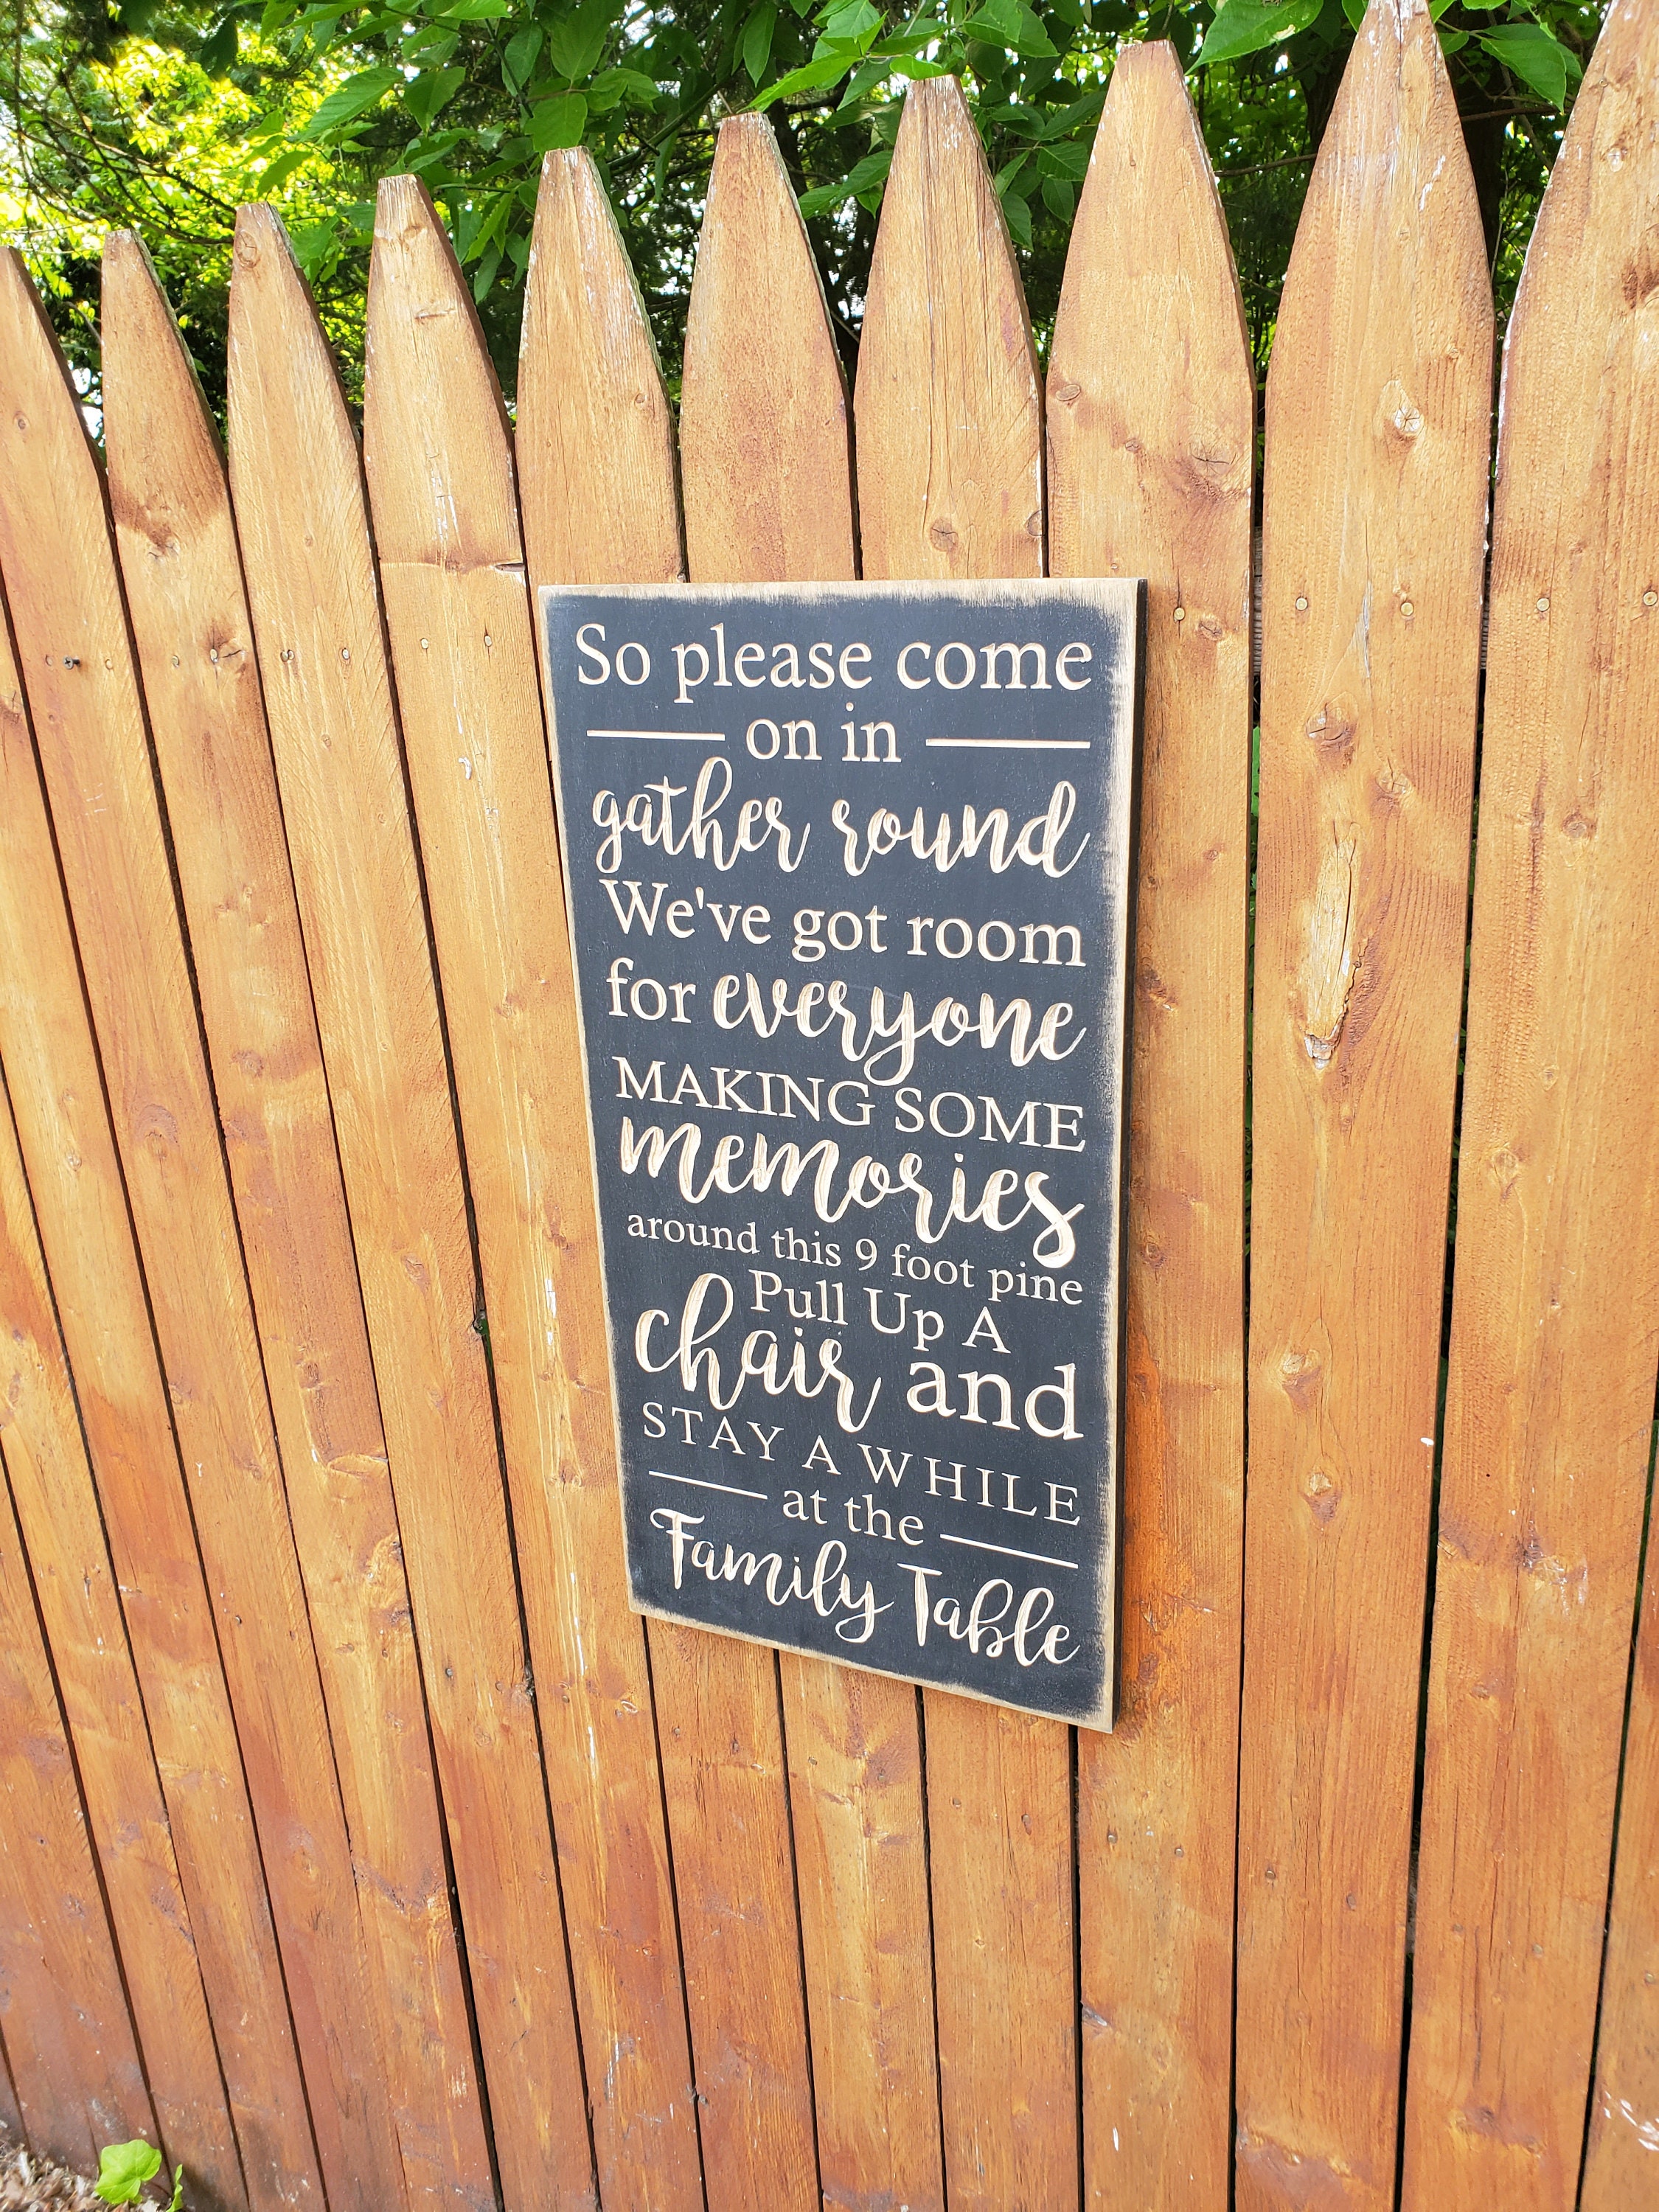 So please come
on in
gather round
We've got room
for everyone
MAKING SOME
memories
around this 9 foot pine
Pull Up A
chair and
STAY A WHILE
at the
Family Table